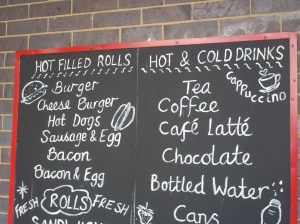 HOT FILLED ROLLS
Burger
Cheese Burger
Hot Dogs
Sausage & Egg
Bacon
Bacon & Egg
FRESH ROLLS FRESH
HOT & COLD DRINKS
Cappuccino
Tea
Coffee
Café Latté
Chocolate
Bottled Water
Cans